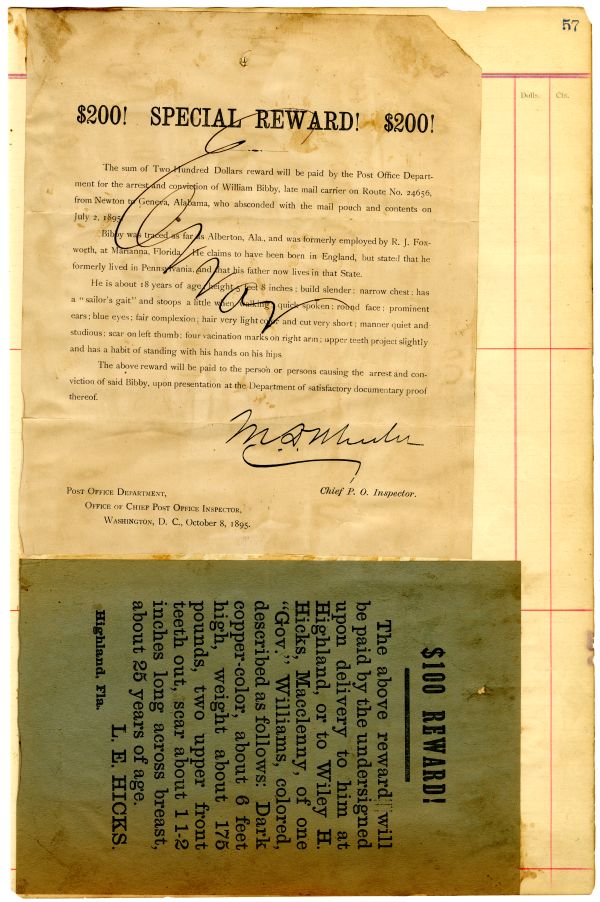 57
Dolls. Cts.
$200! SPECIAL REWARD! $200!
The sum of Two Hundred Dollars reward will be paid by the Post Office Depart-
ment for the arrest and conviction of William Bibby, late mail carrier on Route No. 24656,
from Newton to Geneva, Alabama, who absconded with the mail pouch and contents on
July 2, 1895.
Bibby was traced as far as Alberton, Ala., and was formerly employed by R. J. Fox-
worth, at Marianna, Florida. He claims to have been born in England, but stated that he
formerly lived in Pennsylvania, and that his father now lives in that State.
He is about 18 years of age; height 5 feet 8 inches; build slender; narrow chest; has
a "sailor's gait" and stoops a little when walking; quick spoken; round face; prominent
ears; blue eyes; fair complexion; hair very light color and cut very short; manner quiet and
studious; scar on left thumb; four vacination marks on right arm; upper teeth project slightly
and has a habit of standing with his hands on his hips.
The above reward will be paid to the person or persons causing the arrest and con-
viction of said Bibby, upon presentation at the Department of satisfactory documentary proof
thereof.
Chief P. O. Inspector.
Post Office Department,
Office of Chief Post Office Inspector,
Washington, D. C., October 8, 1895.
$100 REWARD!
The above reward will
be paid by the undersigned
upon delivery to him at
Highland, or to Wiley H.
Hicks, Macclenny, of one
"Gov." Williams, colored,
described as follows: Dark
copper-color, about 6 feet
high, weight about 175
pounds, two upper front
teeth out, scar about 1 1-2
inches long across breast,
about 25 years of age.
L. E. HICKS.
Highland, Fla.